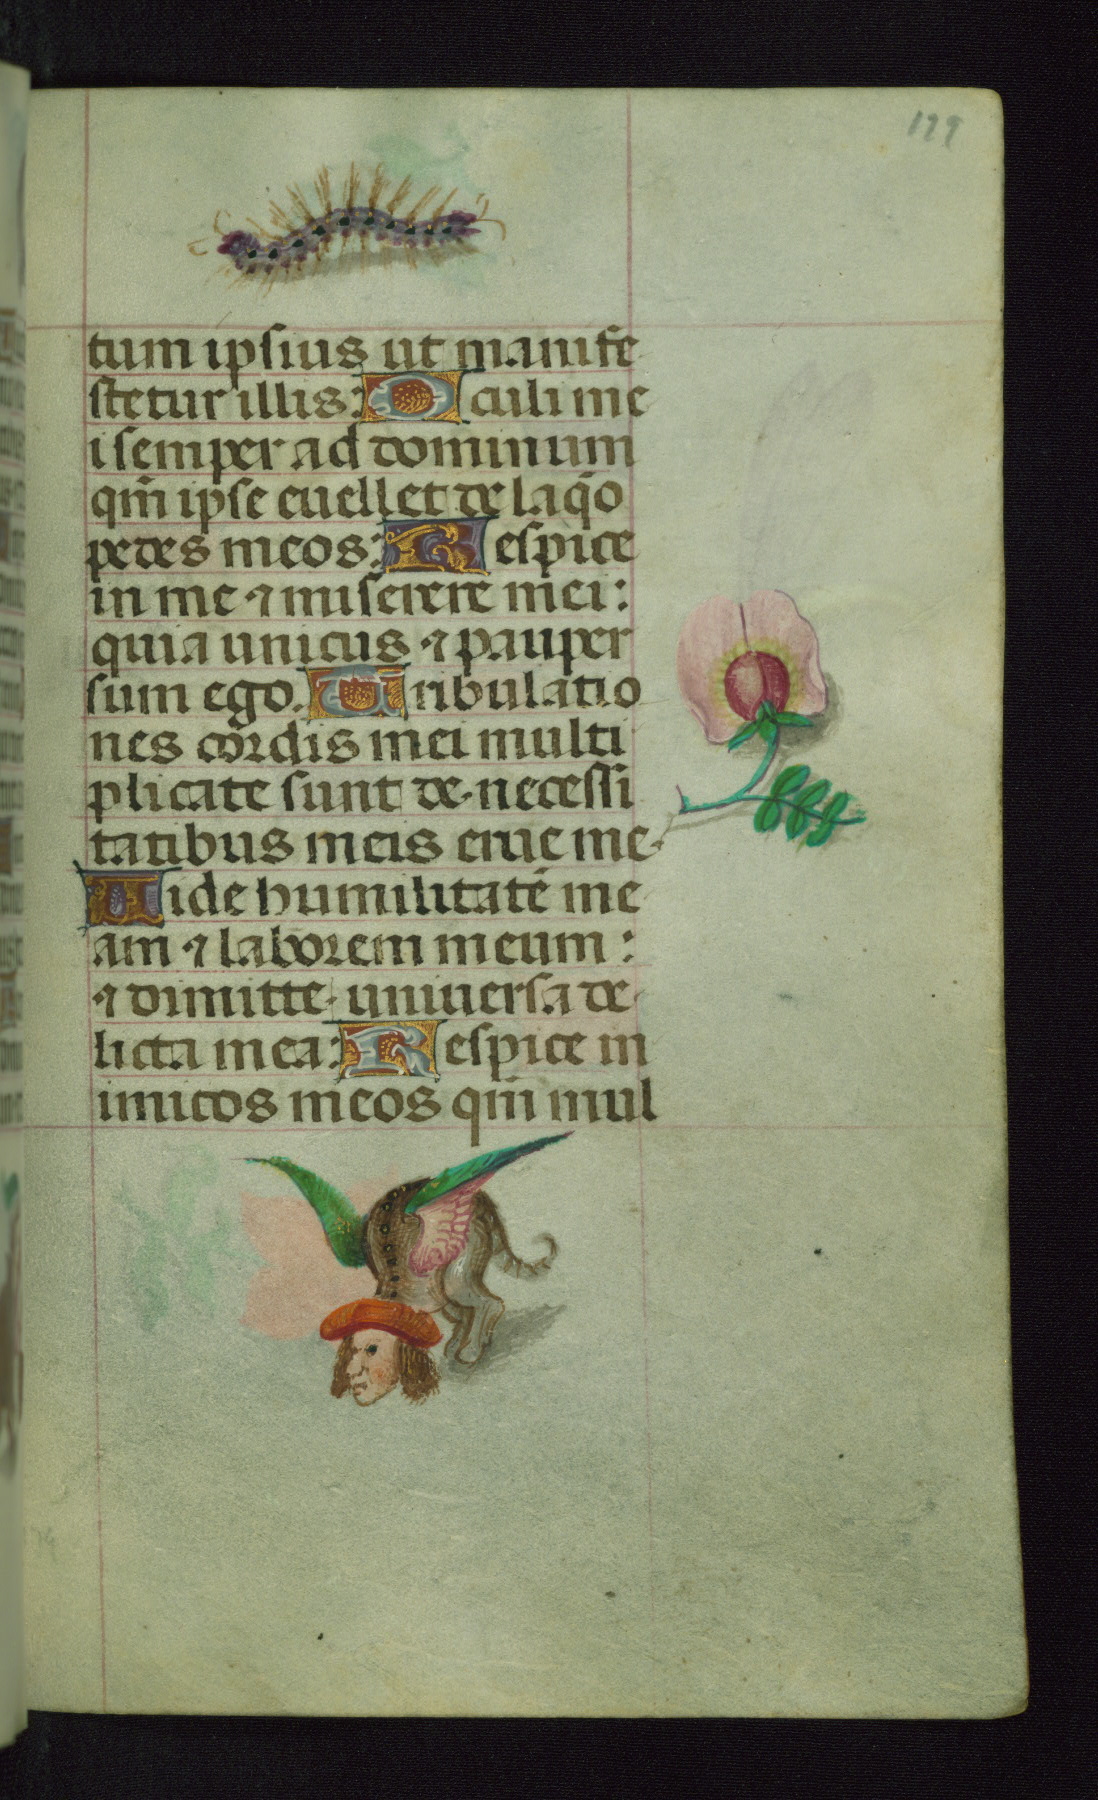 199
tum ipsius ut manife
stetur illis: Oculi me
i semper ad dominum
qm̄ ipse euellet de laq̄o
pedes meos: Respice
in me ⁊ miserere mei:
quia unicus ⁊ pauper
sum ego. Tribulatio
nes cordis mei multi
plicate sunt de necessi
tatibus meis erue me.
Uide humilitatē me
am ⁊ laborem meum:
⁊ dimitte uniuersa de
licta mea: Respice in
imicos meos qm̄ mul